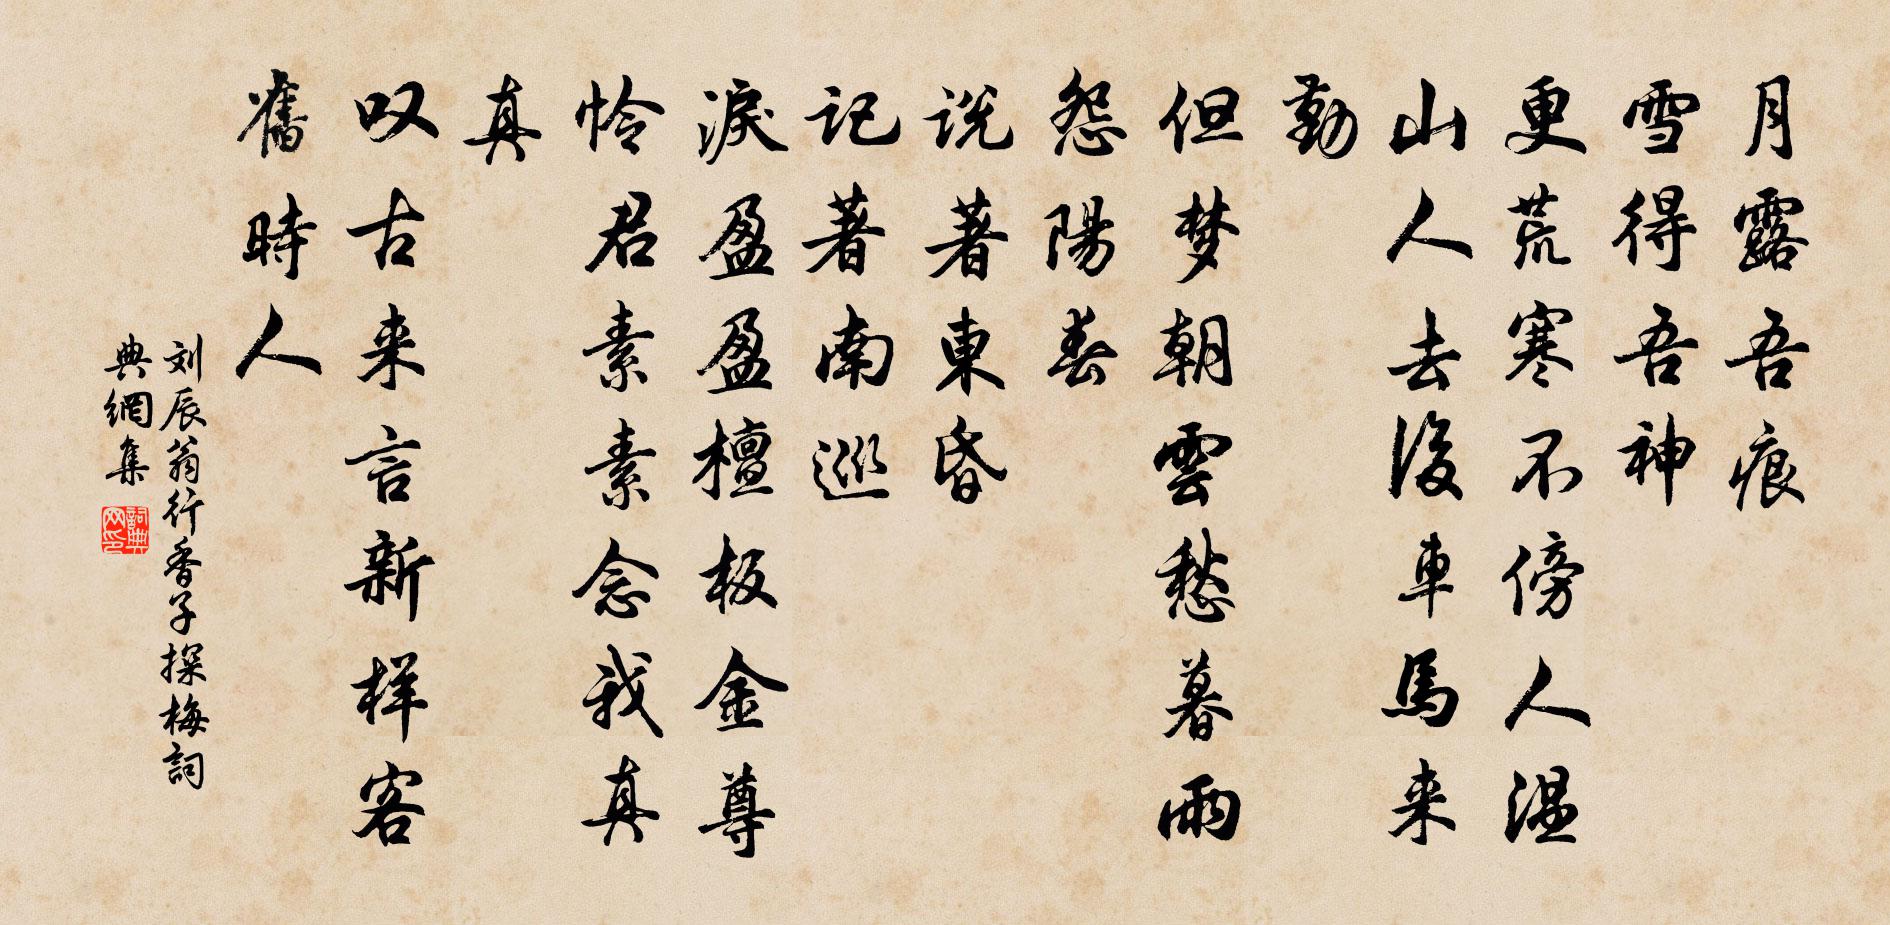 月露吾痕
雪得吾神
更荒寒不傍人温
山人去後車馬来
勤
但梦朝雲愁暮雨
怨陽春
説著東昏
記著南巡
淚盈盈檀板金尊
怜君素素念我真
真
叹古来言新样客
舊時人
刘辰翁行香子探梅詞
典網集
詞典网印